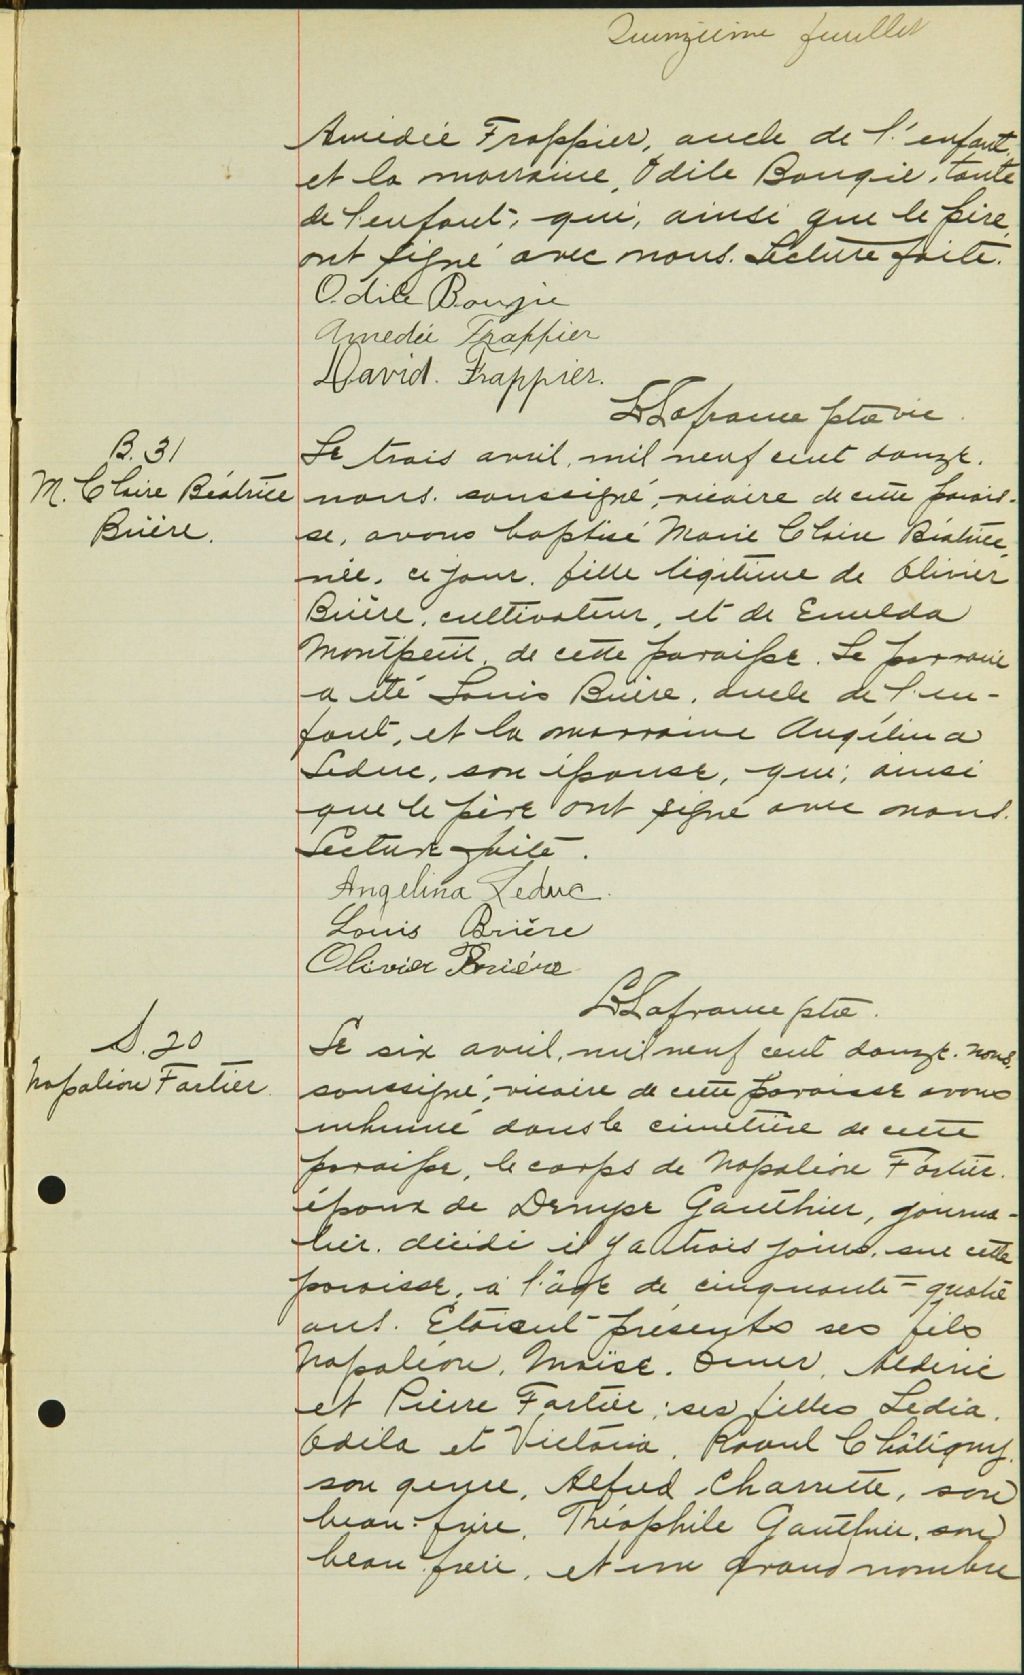 Quinzième feuillet
Amédée Frappier, oncle de l'enfant,
et la marraine, Odile Bougie, tante
de l'enfant, qui, ainsi que le père,
ont signé avec nous. Lecture faite.
Odile Bougie
Amedée Frappier
David. Frappier.
Lafrance ptre vic.
B. 31
M. Claire Béatrice
Brière.
Le trois avril, mil neuf cent douze,
nous, soussigné, vicaire de cette parois-
se, avons baptisé Marie Claire Béatrice,
née, ce jour, fille légitime de Olivier
Brière, cultivateur, et de Emelda
Montpetit, de cette paroisse. Le parrain
a été Louis Brière, oncle de l'en-
fant, et la marraine Angélina
Leduc, son épouse, qui, ainsi
que le père ont signé avec nous.
Lecture faite.
Angelina Leduc.
Louis Brière
Olivier Brière
Lafrance ptre.
S. 20
Napoléon Fortier
Le six avril, mil neuf cent douze, nous,
soussigné, vicaire de cette paroisse avons
inhumé dans le cimetière de cette
paroisse, le corps de Napoléon Fortier,
époux de Denyse Gauthier, journa-
lier, décédé il y a trois jours, sur cette
paroisse, à l'âge de cinquante-quatre
ans. Étaient présents ses fils
Napoléon, Moïse, Omer, Aldéric
et Pierre Fortier; ses filles Ledia,
Odila et Victoria, Raoul Châtigny,
son genre, Alfred Charrette, son
beau-frère, Théophile Gauthier, son
beau frère, et un grand nombre